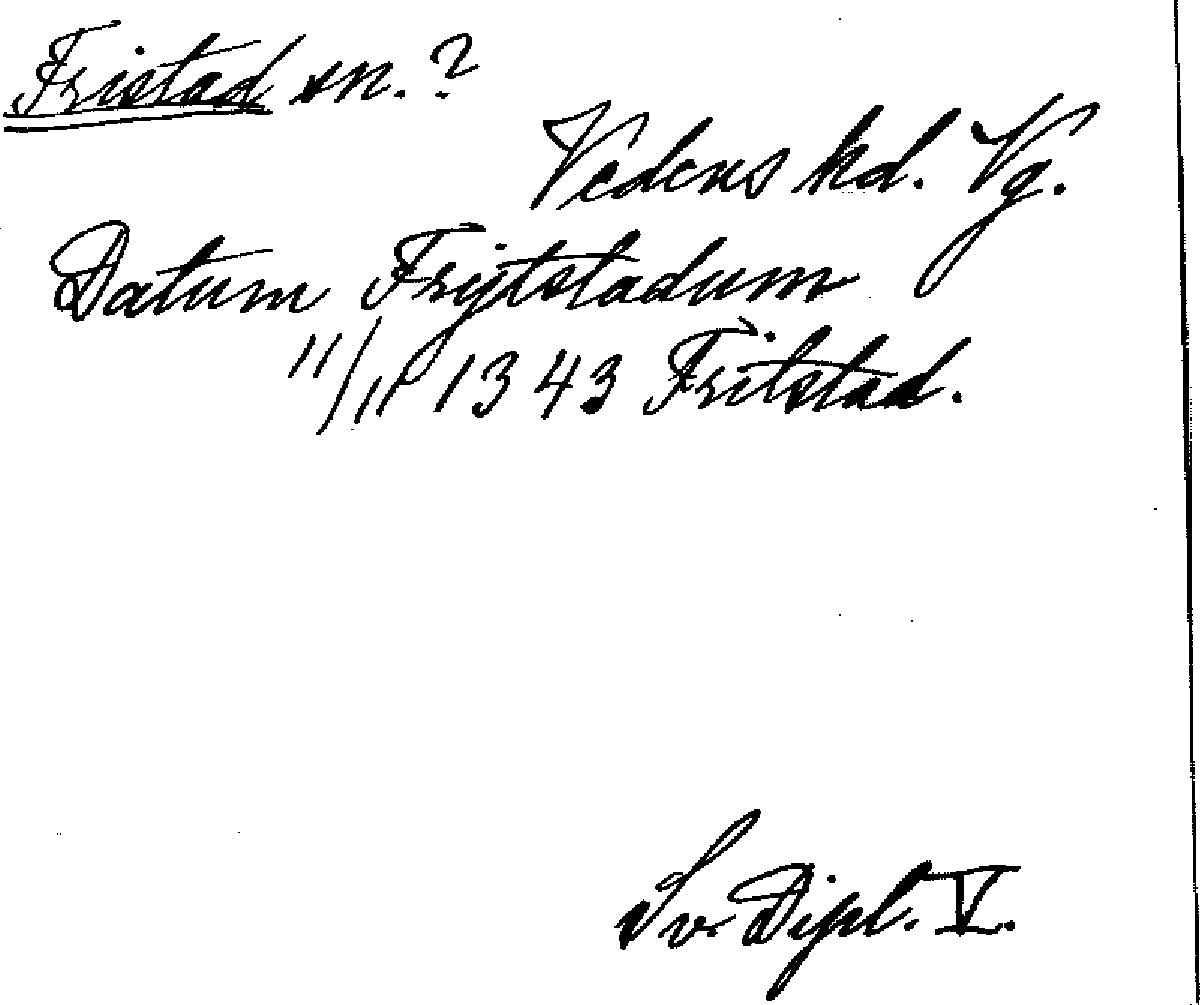 Fristad sn.?
Vedens hd. Vg.
Datum Frijtstadum
11/11 1343 Fritstad.
Sv. Dipl. V.